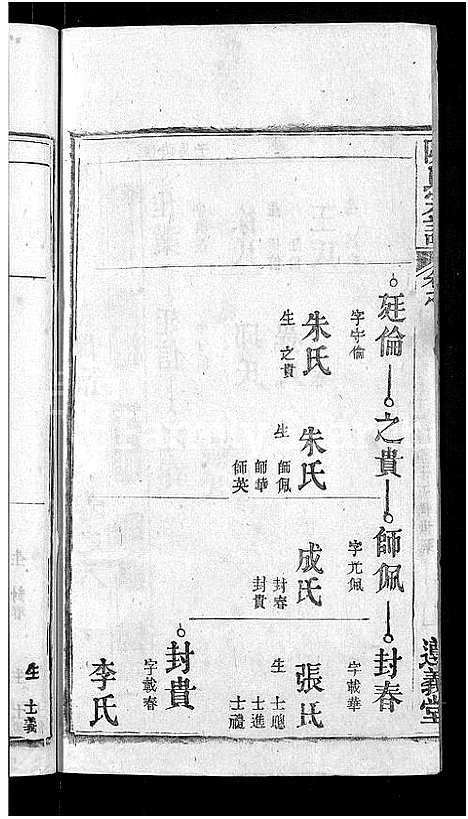 廷倫 之貴 師佩 封春
字守倫
朱氏
生 之貴
朱氏
生 師佩
師華
師英
字元佩
成氏
生 封春
封貴
字載華
張氏
生 士聰
士進
士禮
封貴
字載春
李氏
生 士義
遵義堂